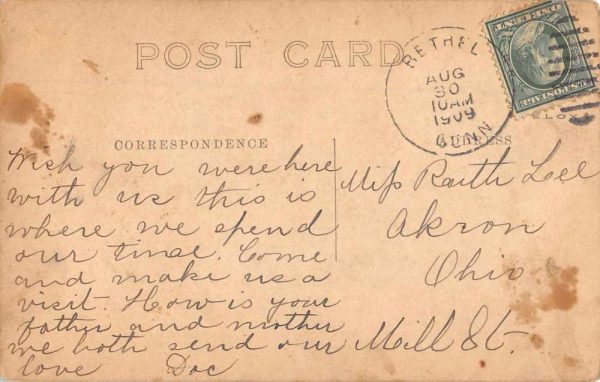 POST CARD
BETHEL
AUG
30
10AM
1909
CONN
CORRESPONDENCE
ADDRESS
Wish you were here
with us this is
where we spend
our time. Come
and make us a
visit. How is your
father and mother
we both send our
love Doc
Miss Ruth Lee
Akron
Ohio
Mill St.